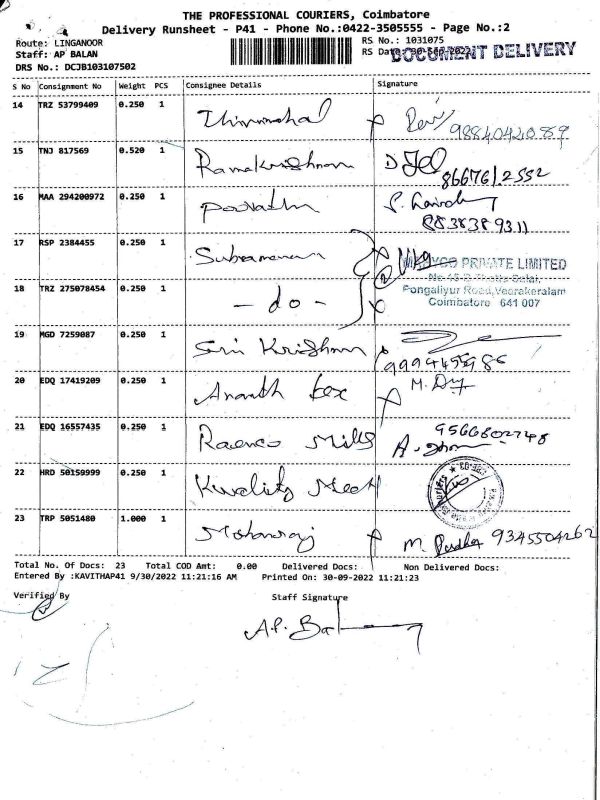 THE PROFESSIONAL COURIERS, Coimbatore
Delivery Runsheet - P41 - Phone No.:0422-3505555 - Page No.:2
Route: LINGANOOR
Staff: AP BALAN
DRS No.: DCJB103107502
RS No.: 1031075
RS Date: 30-Sep-2022
DOCUMENT DELIVERY
S No Consignment No Weight PCS Consignee Details Signature
14 TRZ 53799409 0.250 1
9884042089
15 TNJ 817569 0.520 1 Ramakrishnan
16 MAA 294200972 0.250 1
8838389311
17 RSP 2384455 0.250 1 Subramanian
PRIVATE LIMITED
18 TRZ 275078454 0.250 1 - do -
Pongaliyur Road, Veerakeralam
Coimbatore 641 007
19 MGD 7259087 0.250 1 Sri Krishnan
20 EDQ 17419209 0.250 1 Ananth tex
21 EDQ 16557435 0.250 1 Raenco Mills
9566602748
22 HRD 50159999 0.250 1 Kwality
23 TRP 5051480 1.000 1 Mohanraj
9345504262
Total No. Of Docs: 23 Total COD Amt: 0.00 Delivered Docs: Non Delivered Docs:
Entered By :KAVITHAP41 9/30/2022 11:21:16 AM Printed On: 30-09-2022 11:21:23
Verified By Staff Signature
A.P. Bal